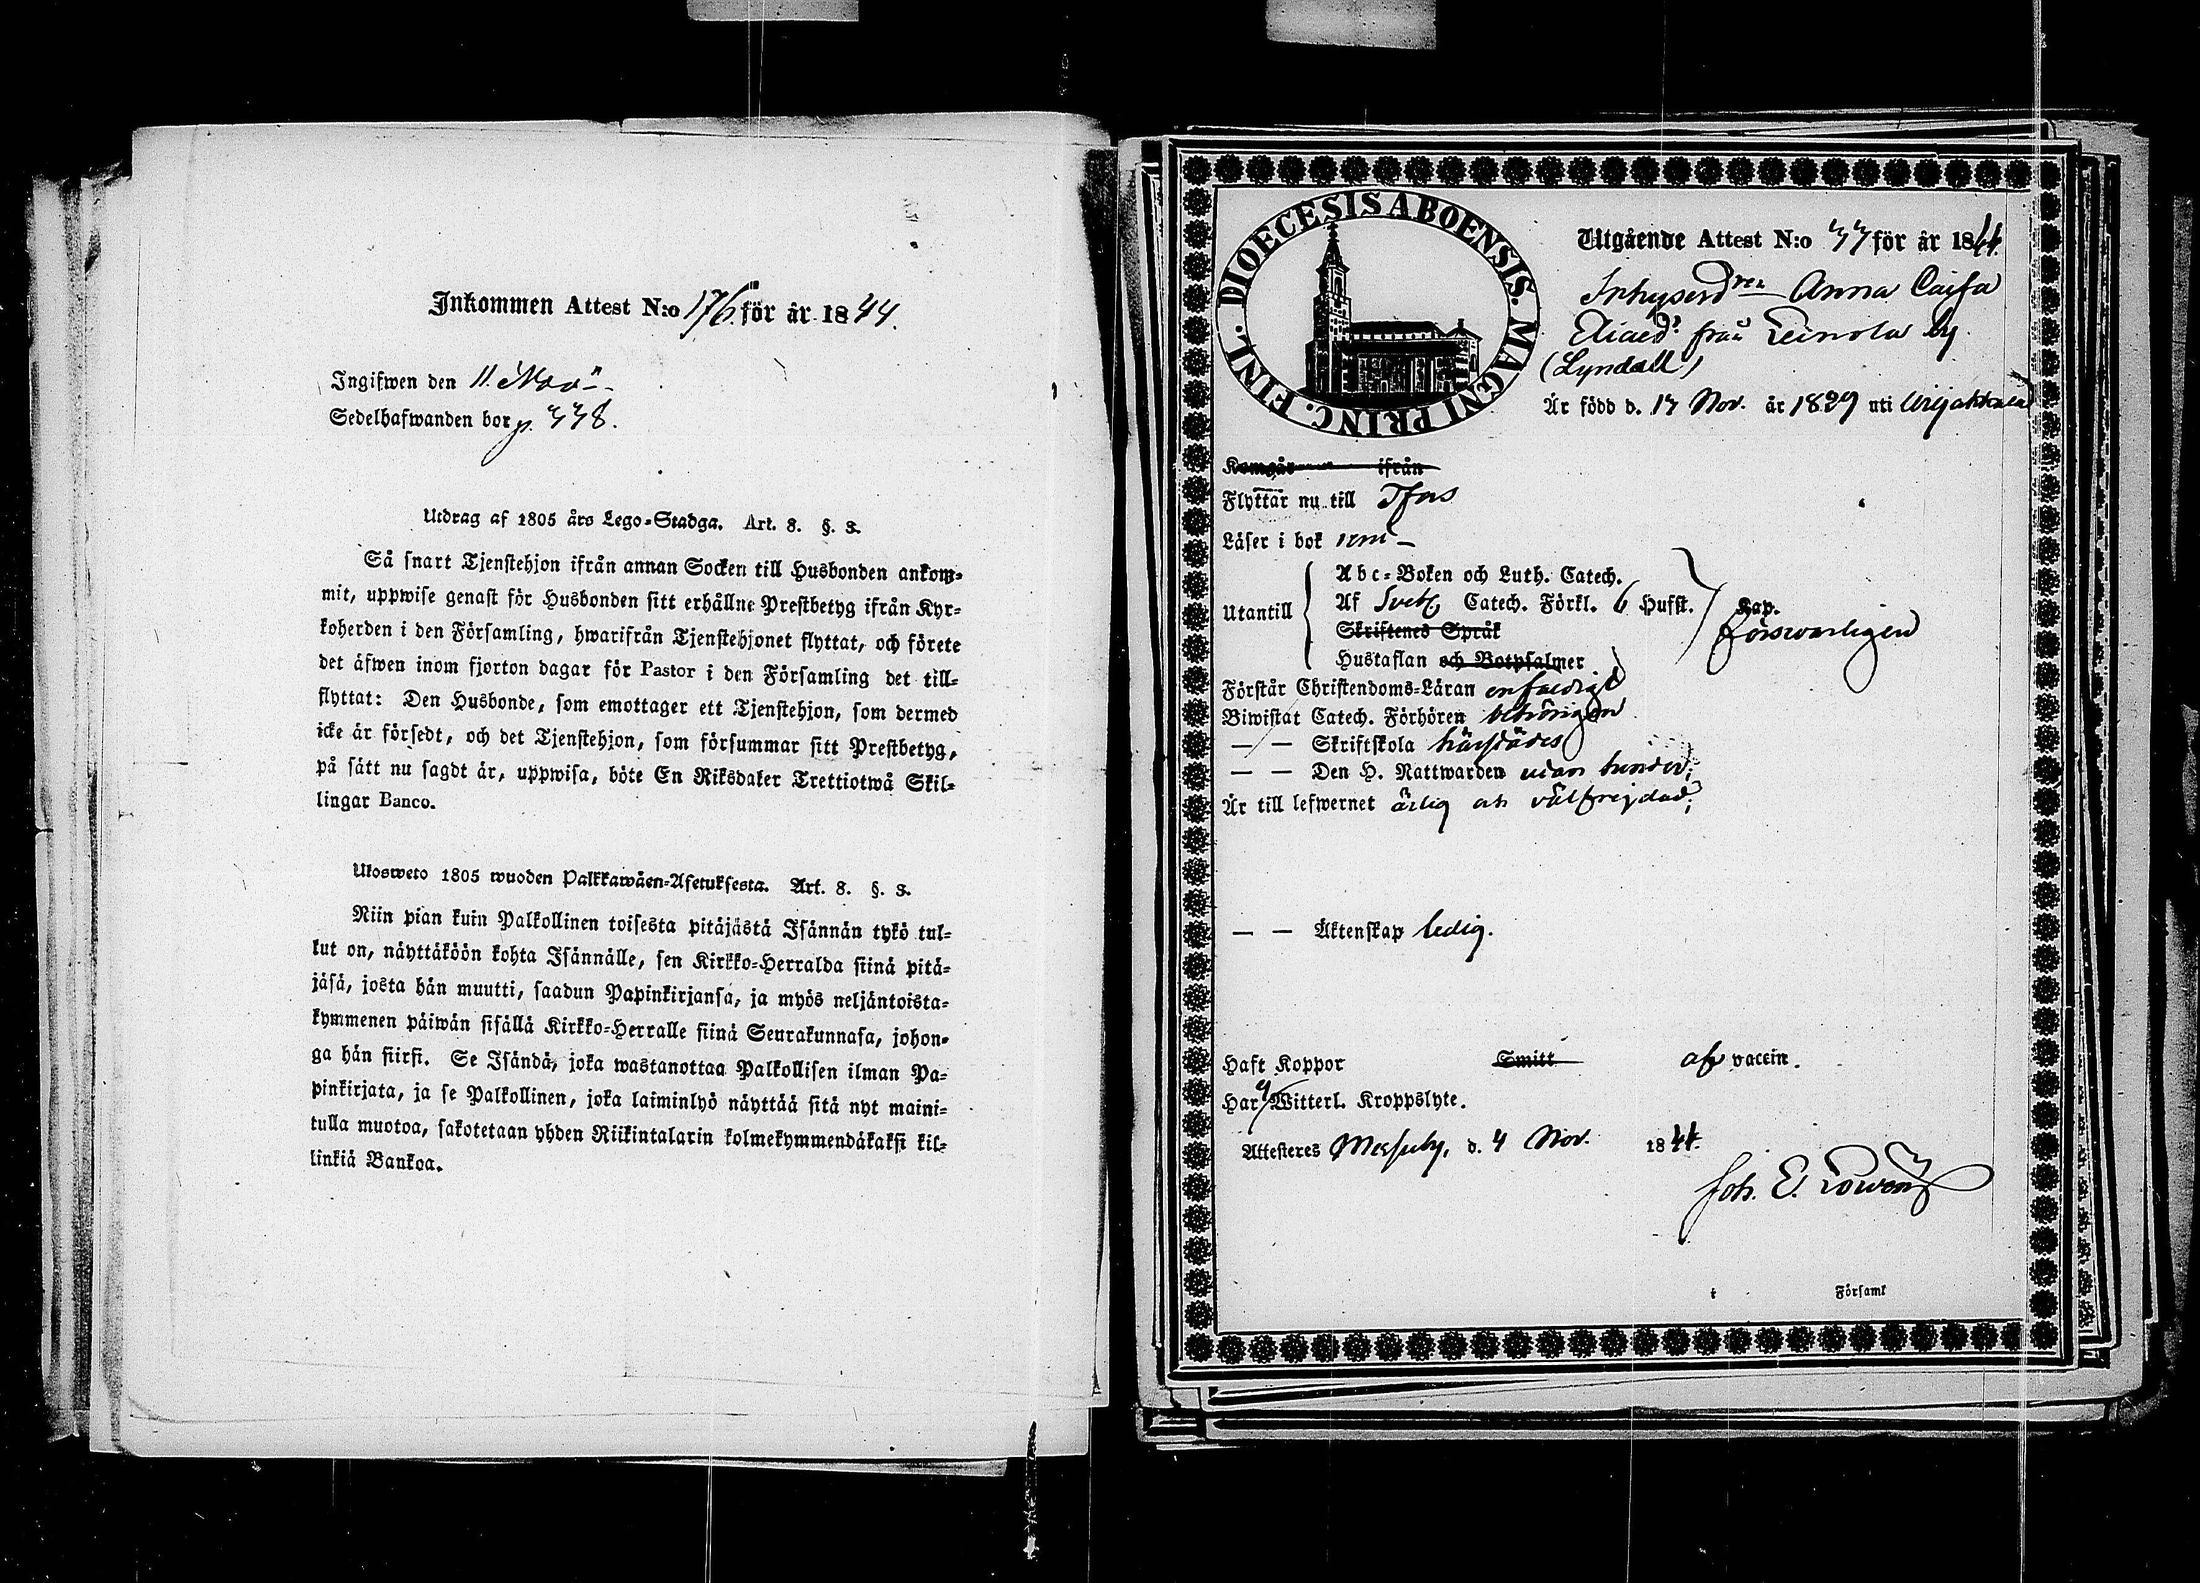 Inkommen Attest N:o 176. för år 1844.
Ingifwen den 11. Nov:
Sedelhafwanden bor p. 338.
Utdrag af 1805 års Lego-Stadga. Art. 8. §. 3.
Så snart Tjenstehjon ifrån annan Socken till Husbonden ankom-
mit, uppwise genast för Husbonden sitt erhållne Prestbetyg ifrån Kyr-
koherden i den Församling, hwarifrån Tjenstehjonet flyttat, och förete
det äfwen inom fjorton dagar för Pastor i den Församling det till-
flyttat: Den Husbonde, som emottager ett Tjenstehjon, som dermed
icke är försedt, och det Tjenstehjon, som försummar sitt Prestbetyg,
på sätt nu sagdt är, uppwisa, böte En Riksdaler Trettiotwå Skil-
lingar Banco.
Ulosweto 1805 wuoden Palkkawäen-Asetuksesta. Art. 8. §. 3.
Niin pian kuin Palkollinen toisesta pitäjästä Isännän tykö tul-
lut on, näyttäköön kohta Isännälle, sen Kirkko-Herralda siinä pitä-
jäsä, josta hän muutti, saadun Papinkirjansa, ja myös neljäntoista-
kymmenen päiwän sisällä Kirkko-Herralle siinä Seurakunnasa, johon-
ga hän siirsi. Se Isändä, joka wastanottaa Palkollisen ilman Pa-
pinkirjata, ja se Palkollinen, joka laiminlyö näyttää sitä nyt maini-
tulla muotoa, sakotetaan yhden Riikintalarin kolmekymmendäkaksi kil-
linkiä Bankoa.
DIOECESIS ABOENSIS. MAGNI PRINC. FINL.
Utgående Attest N:o 33 för år 1844.
Inhysesd:ren Anna Caisa
Eliaed:r från Leinola by
(Lyndall)
Är född d. 17 Nov. år 1829 uti Urijakkala
Komgår ifrån
Flyttar nu till Tfors
Läser i bok rent
Abc-Boken och Luth. Catech.
Utantill Af Sveb. Catech. Förkl. 6 Hufst. Kap.
försvarligen
Skriftenes Språk
Hustaflan och Botpsalmer
Förstår Christendoms-Läran enfaldigt
Biwistat Catech. Förhören behörigen
— — Skriftskola härstädes
— — Den H. Nattwarden utan hinder;
Är till lefwernet ärlig och välfrejdad;
— — Äktenskap ledig.
Haft Koppor Smitt af vaccin.
Har ej Witterl. Kroppslyte.
Attesteres Messuby, d. 4 Nov. 1844.
Joh. E.
i Församl